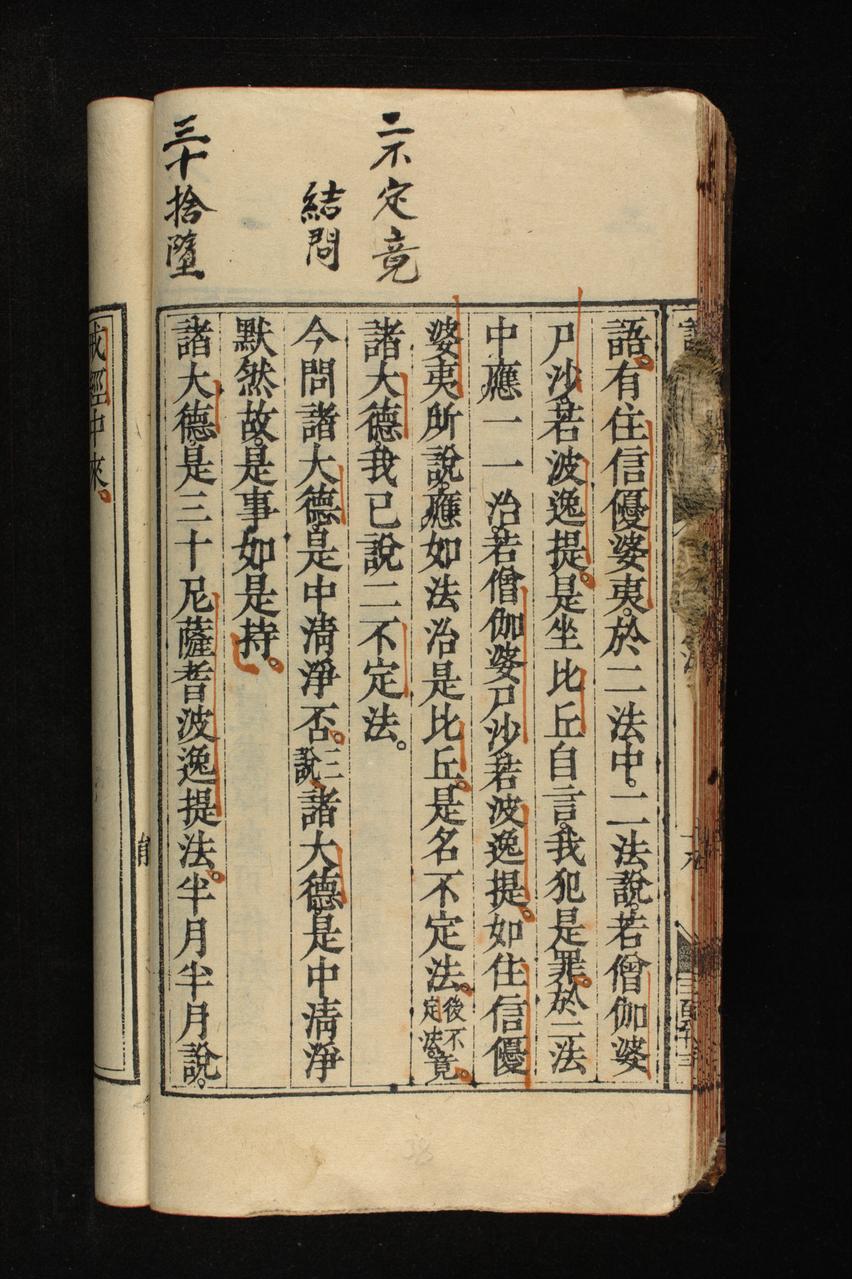 二不定竟
結問
三十捨墮
語。有住信優婆夷。於二法中。二法說。若僧伽婆
尸沙。若波逸提。是坐比丘自言。我犯是罪。於二法
中應一一治。若僧伽婆尸沙。若波逸提。如住信優
婆夷所說。應如法治是比丘。是名不定法。後不定法竟。
諸大德。我已說二不定法。
今問諸大德。是中清淨否。三說諸大德。是中清淨
默然故。是事如是持。
諸大德。是三十尼薩耆波逸提法。半月半月說。
戒經中來。